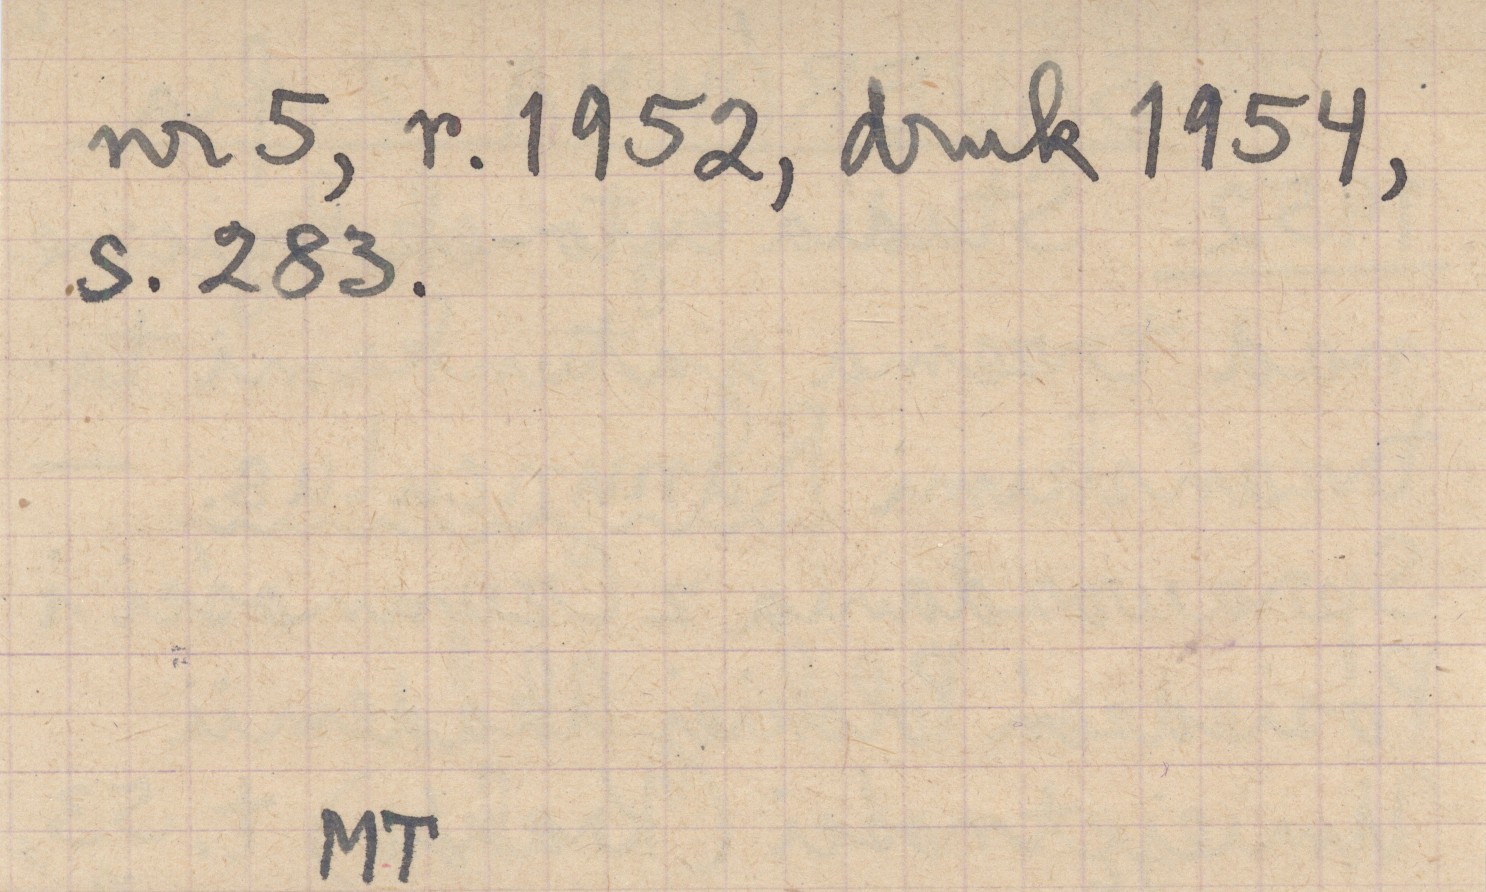 nr 5, r. 1952, druk 1954,
s. 283.
MT